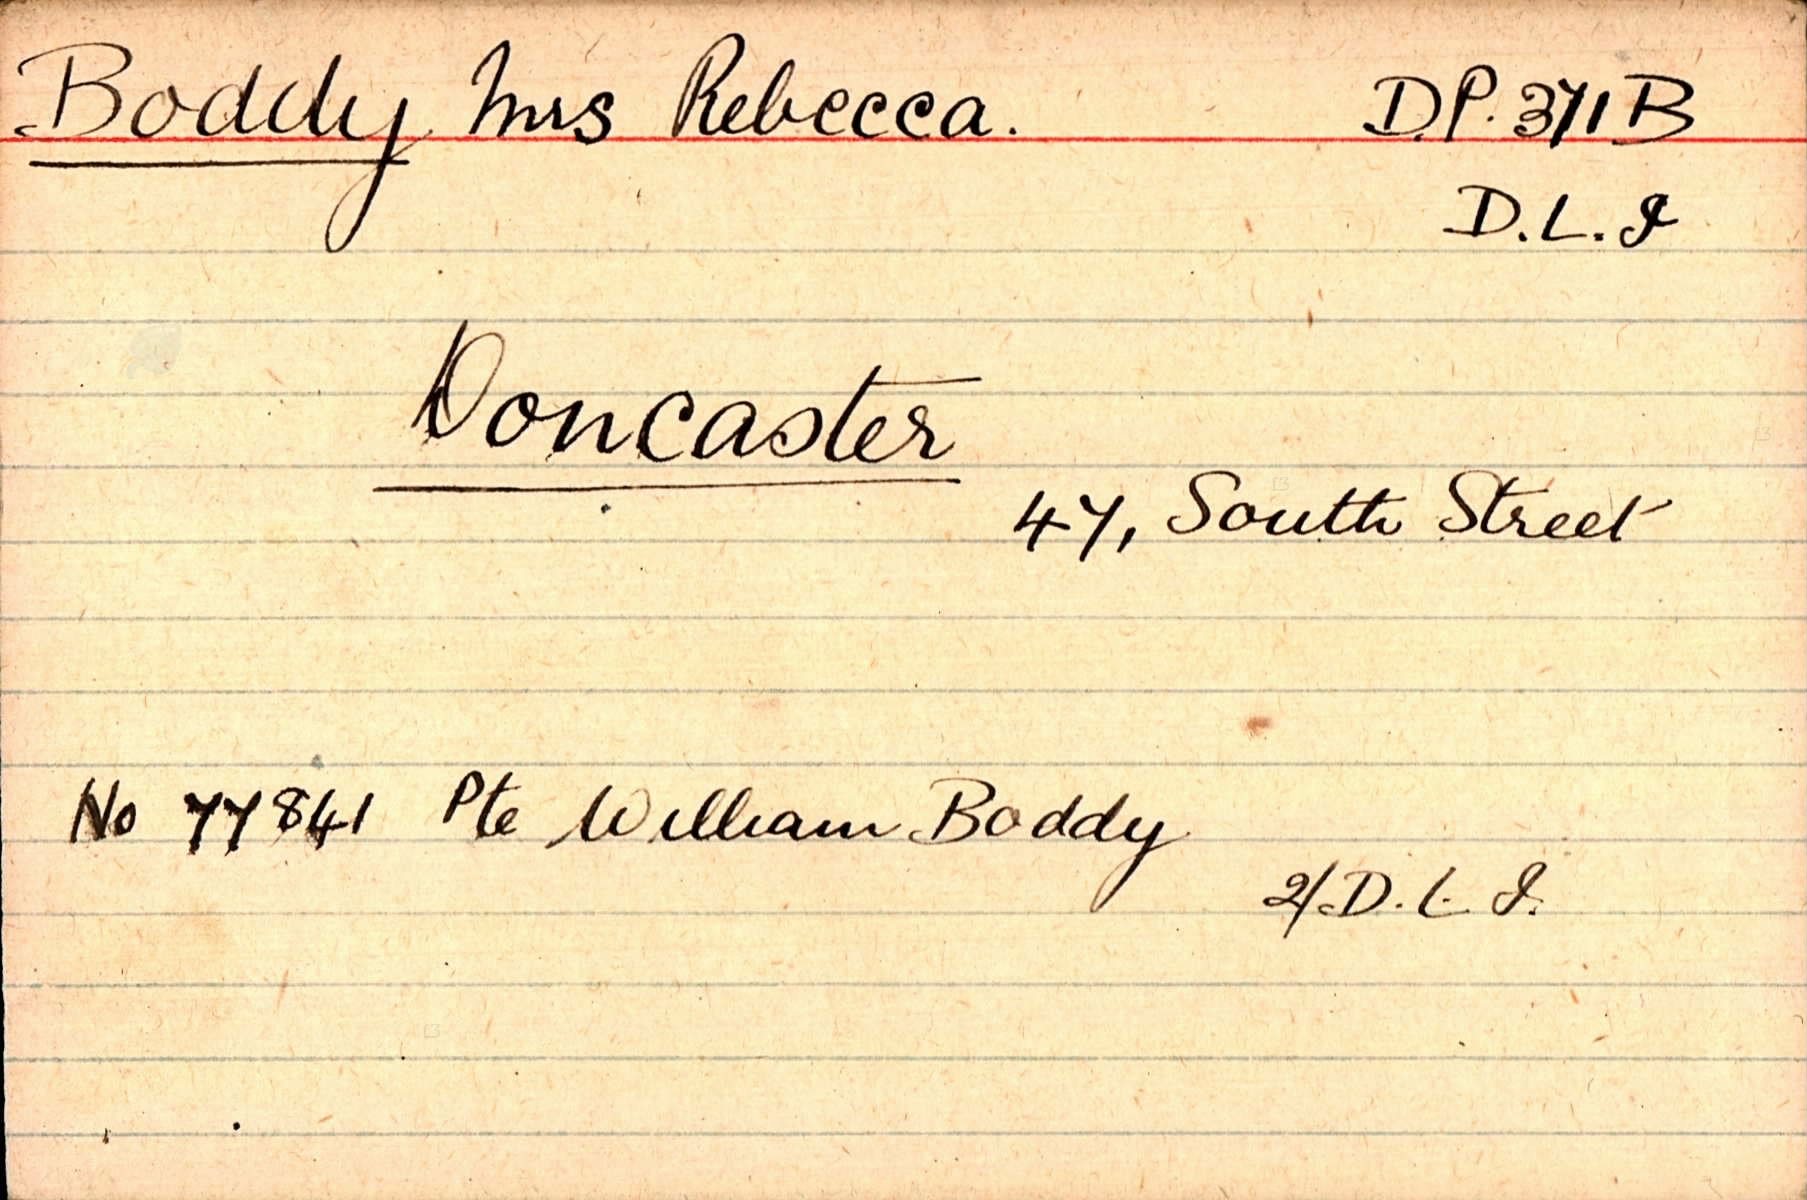 Boddy Mrs Rebecca. D.P. 371B
D.L.I
Doncaster
47, South Street
No 77841 Pte William Boddy
2/D.L.I.